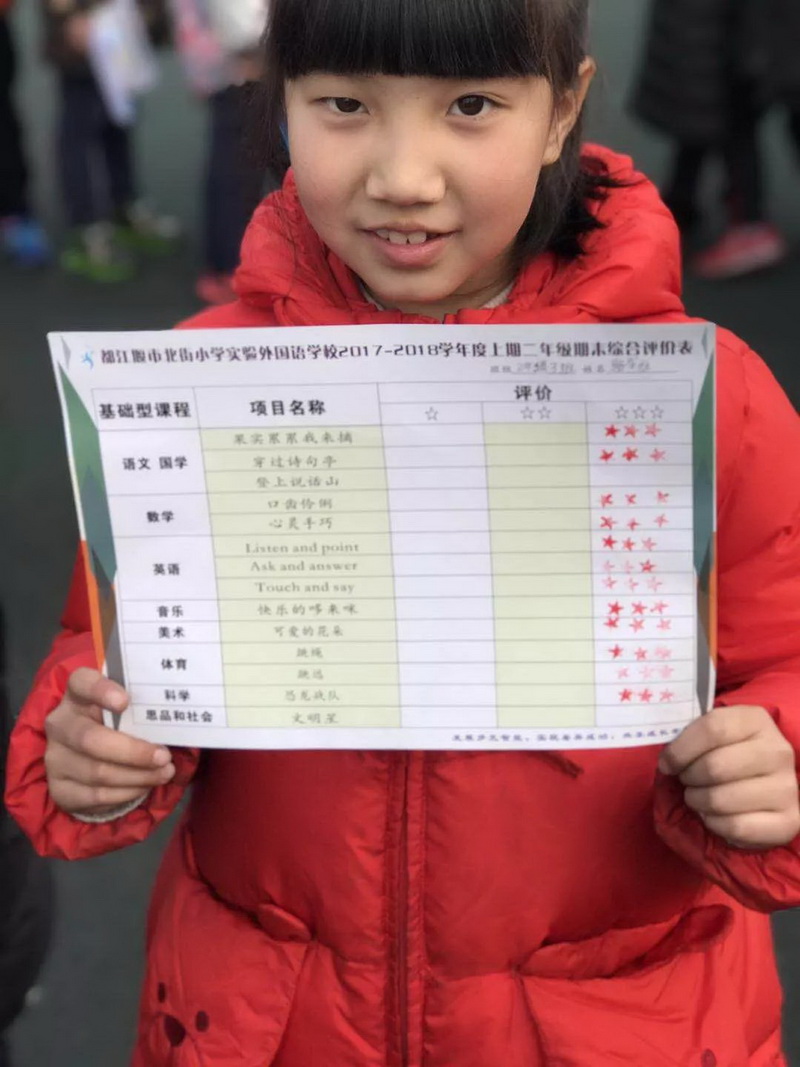 都江堰市北街小学实验外国语学校2017-2018学年度上期二年级期末综合评价表
班级 姓名
基础型课程 项目名称 评价
☆ ☆☆ ☆☆☆
语文 国学 果实累累我来摘
穿过诗句亭
登上说话山
数学 口齿伶俐
心灵手巧
英语 Listen and point
Ask and answer
Touch and say
音乐 快乐的哆来咪
美术 可爱的花朵
体育 跳绳
跳远
科学 恐龙战队
思品和社会 文明星